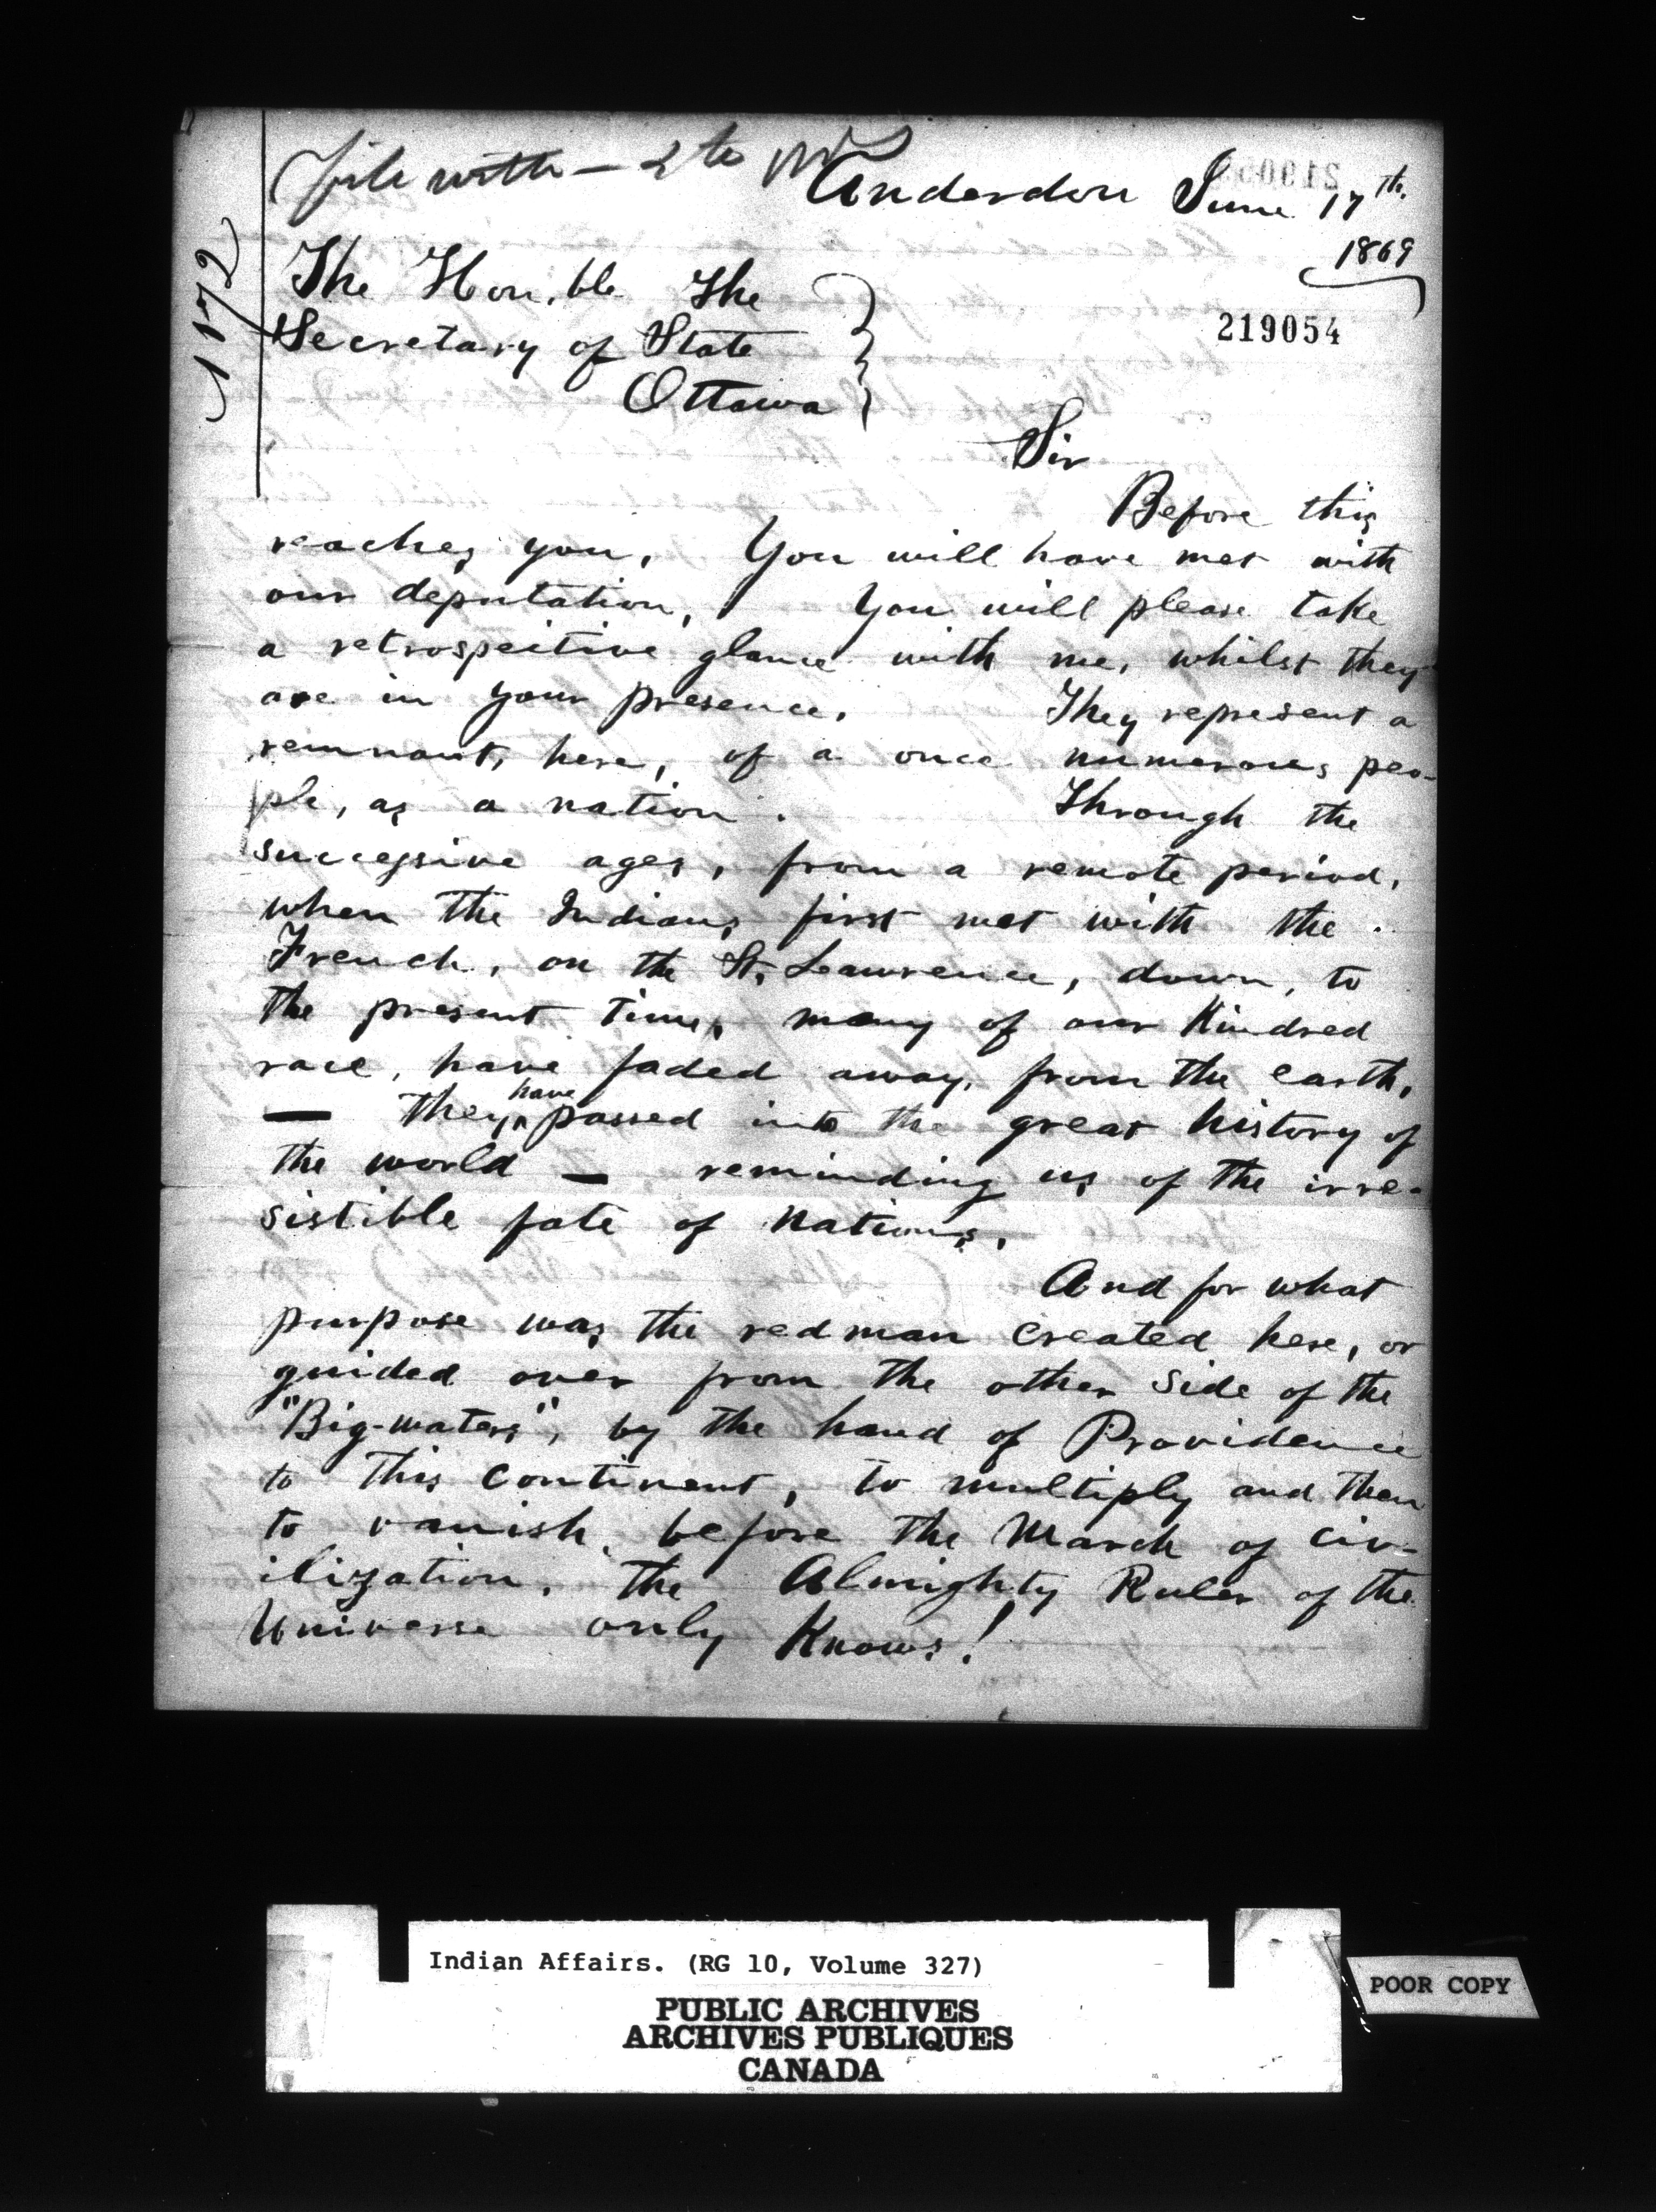 file with
Anderdon June 17th.
1869
1172
The Hon,ble The
Secretary of State
Ottawa
219054
Sir
Before this
reaches you, You will have met with
our deputation, You will please take
a retrospective glance with me, whilst they
are in your presence. They represent a
remnant, here, of a once numerous peo-
ple, as a nation. Through the
successive ages, from a remote period,
when the Indians first met with the
French, on the St. Lawrence, down, to
the present time, many of our Kindred
race, have faded away, from the earth,
— they have passed into the great history of
the world — reminding us of the irre-
sistible fate of Nations.
And for what
purpose was the redman created here, or
guided over from the other side of the
"Big-waters", by the hand of Providence
to this continent, to multiply and then
to vanish, before the March of civ-
ilization, the Almighty Ruler of the
Universe only Knows!
Indian Affairs. (RG 10, Volume 327)
PUBLIC ARCHIVES
ARCHIVES PUBLIQUES
CANADA
POOR COPY